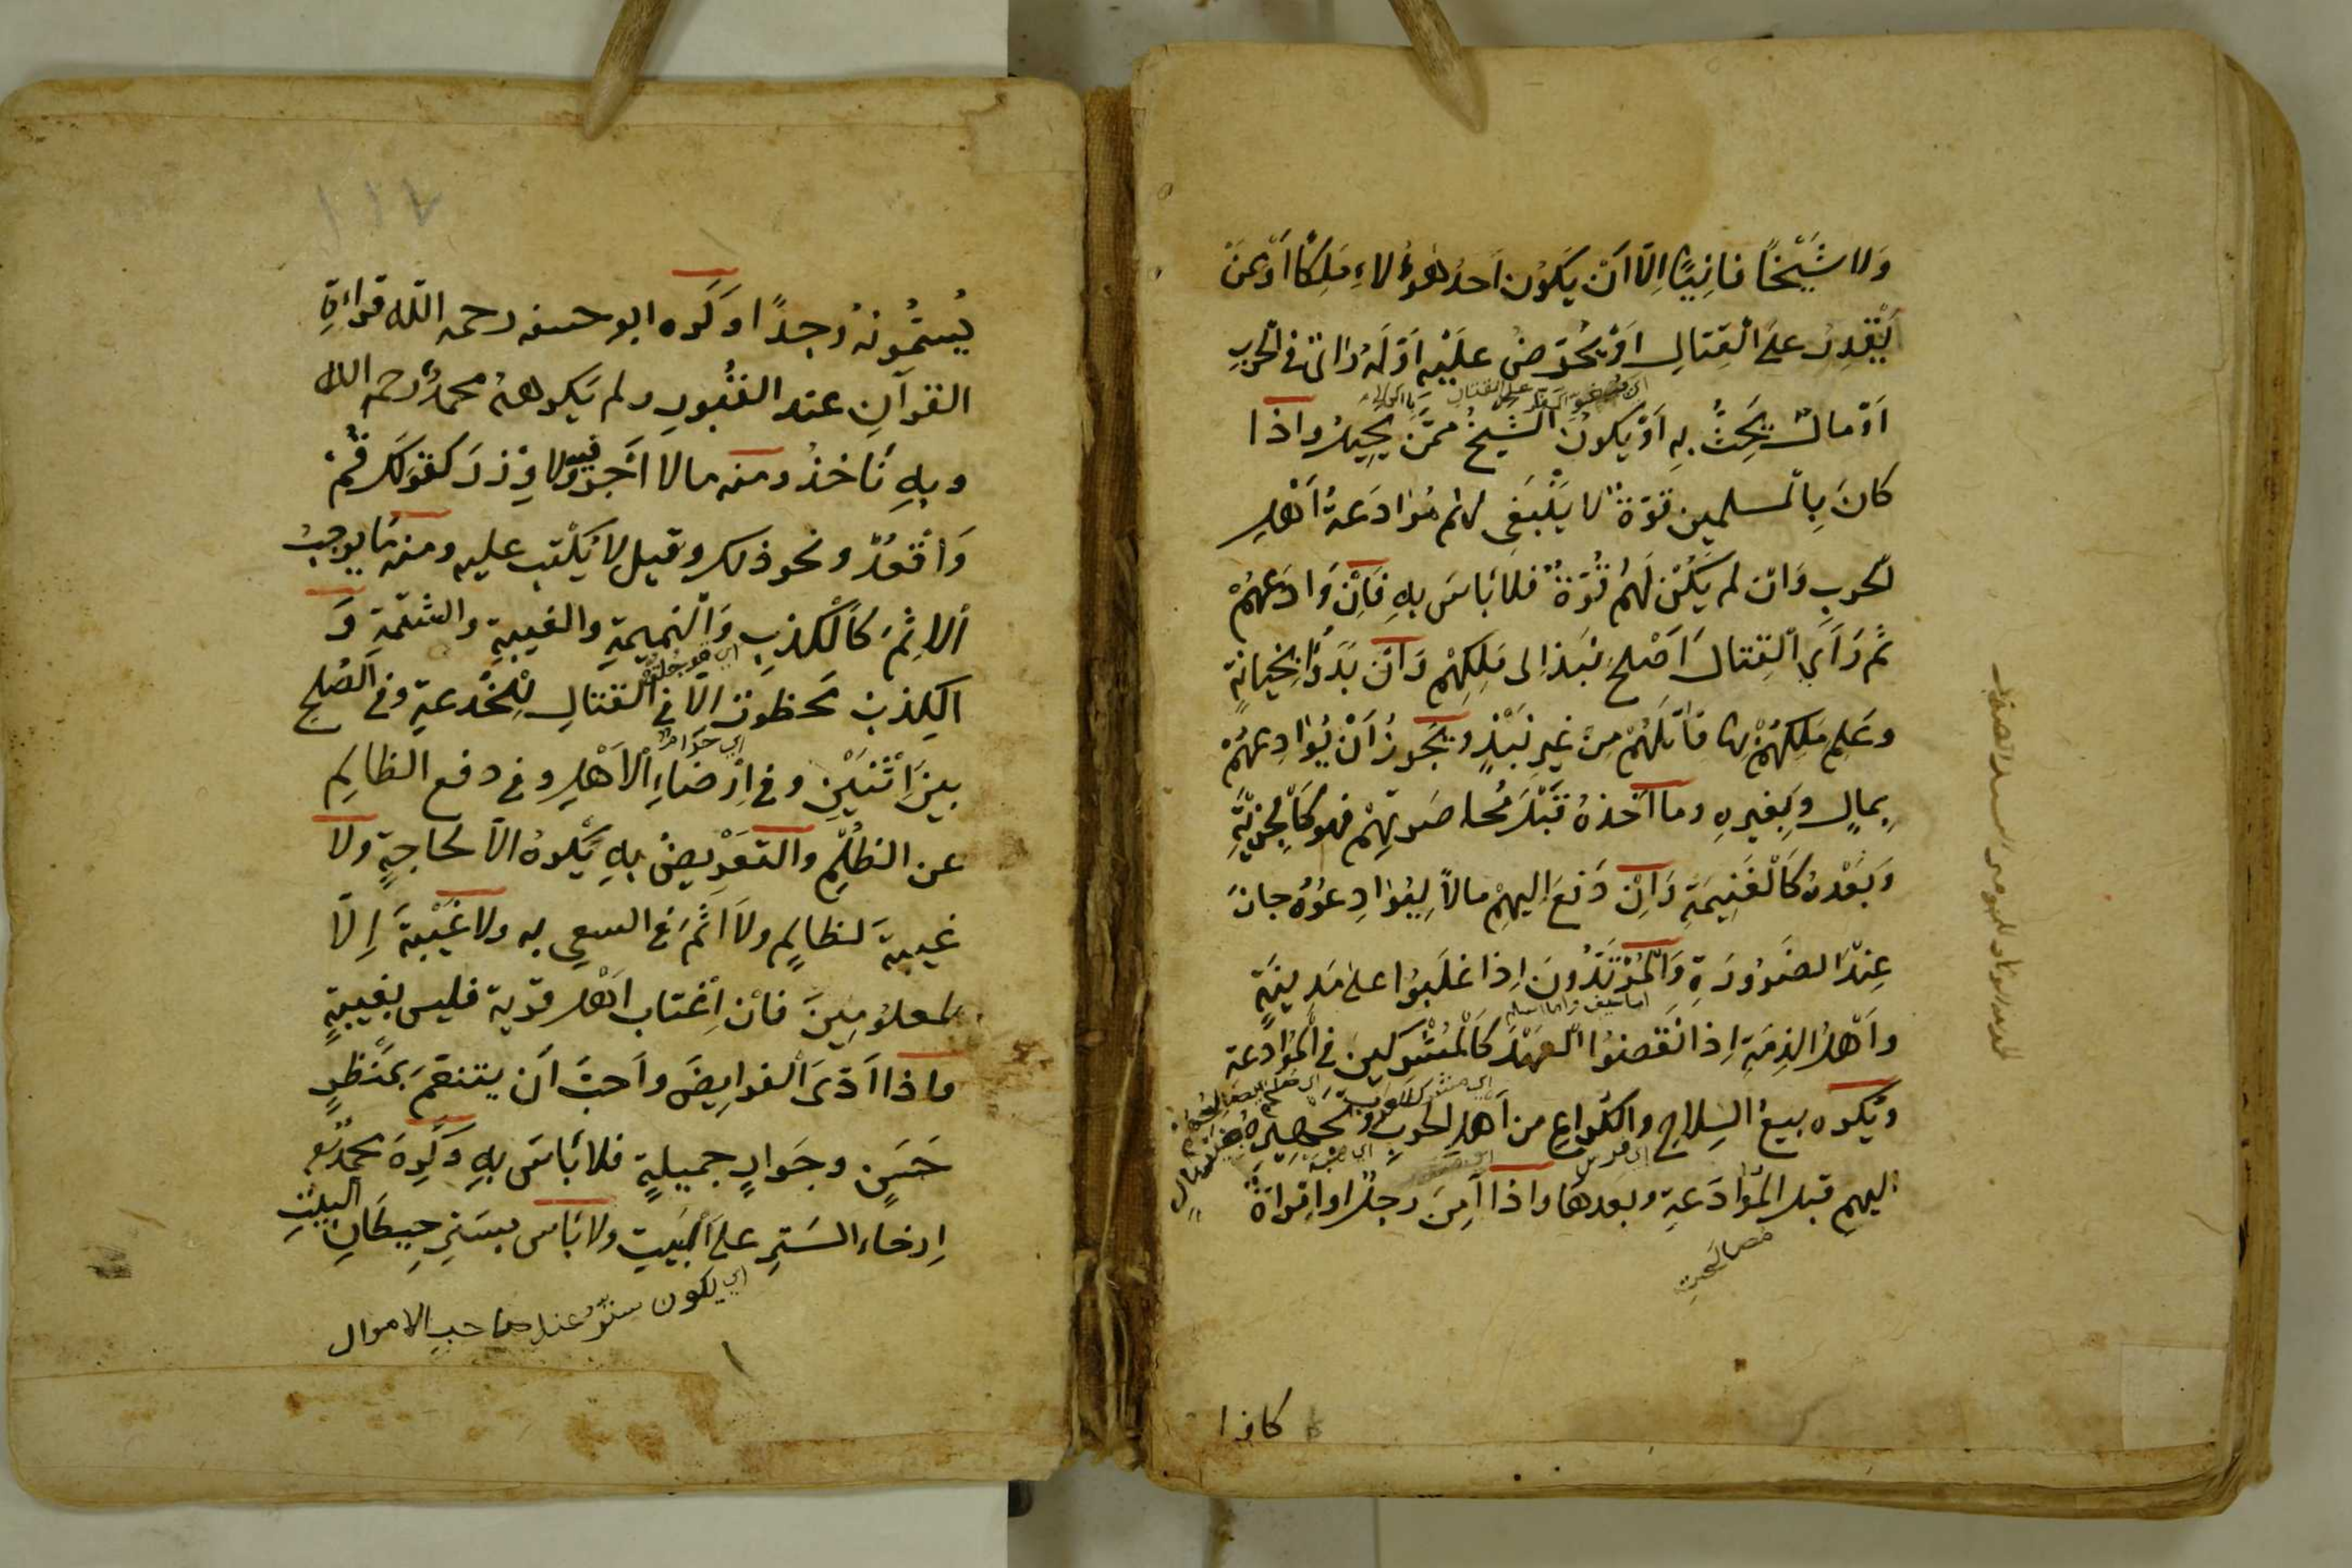 وَلا شَيْخًا فانِيًا اِلّا اَنْ يَكُون اَحدُ هٰؤُلاءِ مَلِكًا اَوْ مَمَنْ
يَقْدِرُ علَى الْقِتالِ اوْ يُحَرِّضُ علَيْهِ اَوْ لَهُ رَاىٌ فى الْحَرْبِ
اَوْ مالٌ يَحُثُّ بِهِ اَوْ يَكونُ الشيخُ ممَّنْ يحيلُ واذا
كانَ بِالْمسلمين قوّةٌ لا يَنْبَغى لهم مُوَادَعةُ اَهْلِ
الحَربِ وَانْ لم يَكُنْ لَهُمْ قُوّةٌ فلا بَاسَ بِهِ فَاِنْ وَادَعهُمْ
ثم رَاَى الْقِتالَ اَصْلحَ نَبَذَ اِلى مَلِكِهِمْ وَاَنْ بَدَؤُا بِخِيانَةٍ
وعَلِم مَلِكُهُمْ بها قاتَلَهُمْ مِنْ غَيرِ نَبْذٍ ويَجُوزُ اَنْ يُوَادِعهُمْ
بِمالٍ وبِغيرِهِ وما اَخَذهُ قَبْلَ مُحاصَرتِهِمْ فهو كَالْجِزْيَةِ
وَبَعْدهُ كَالْغَنِيمَةِ وَاِنْ دَفَعَ اِليهِمْ مالاً لِيُوَادِعُوهُ جازَ
عِنْدَ الضَرُورَةِ وَالْمُرْتَدُّونَ اِذا غلَبُوا على مَدِينَةٍ
اما سيف واما اسلم
واَهْلُ الذِمّةِ اِذا نَقَضُوا الْعَهْدَ كَالْمُشْرِكِينَ فى الْمُوَادعة
ويُكْرَه بيعُ السِلاحِ والكُراعِ من اَهلِ الحَربِ وتَجهِيزُهُ
اليهِم قبل المُوَادَعةِ وبعدهَا واذا اَمَنَ رجلٌ اوِ امْرَاةٌ
مصالحة
كافرا
يُسَمُّونَهُ وجدًا وكَرِه ابو حنيفه رحمه اللّه قراءةِ
القرآنِ عند القُبُورِ ولم يَكرهْهُ محمدٌ رحمه الله
وبِهِ نَاخذُ ومنه مالا اَجْرَ فيه ولا وِزْرَ كقَوْلِكَ قُمْ
وَاقْعُدْ ونحو ذلك وقيل لا يُكْتب عليه ومنه مَا يوجبُ
الاِثْمَ كَالْكِذبِ وَالْنميمةِ والغيبةِ والشتمةِ وَ
الكِذبُ محظورٌ اِلّا فى القتالِ لِلْخُدعةِ وفى الصُلحِ
اى حرامٌ
بينَ اثْنَيْنِ وفى اِرْضاءِ الْاَهْلِ وفى دفع الظالِمِ
عن الظُلْمِ والتعْرِيضُ بِهِ يُكْرهُ الاّ لحاجةٍ ولا
غيبةَ لظالِمٍ ولا اثْمَ فى السعى به ولا غَيْبَةَ اِلّا
لمعلُومِينَ فاْن اغْتاب اَهْل قرية فليس بغيبةٍ
واذا اَدّىَ الْفرايِضَ واَحبَّ اَن يتنعّمَ بمَنْظرٍ
حَسَنٍ وجَوارٍ جميلةٍ فلا بَاسَ بِهِ وكَرِهَ محمدٌ
اِرخاء السَترِ علَى البَيتِ ولا بَاس بسَترِ حِيطَانِ البيْتِ
اى يكون سترٌ عند صاحبِ الاموال